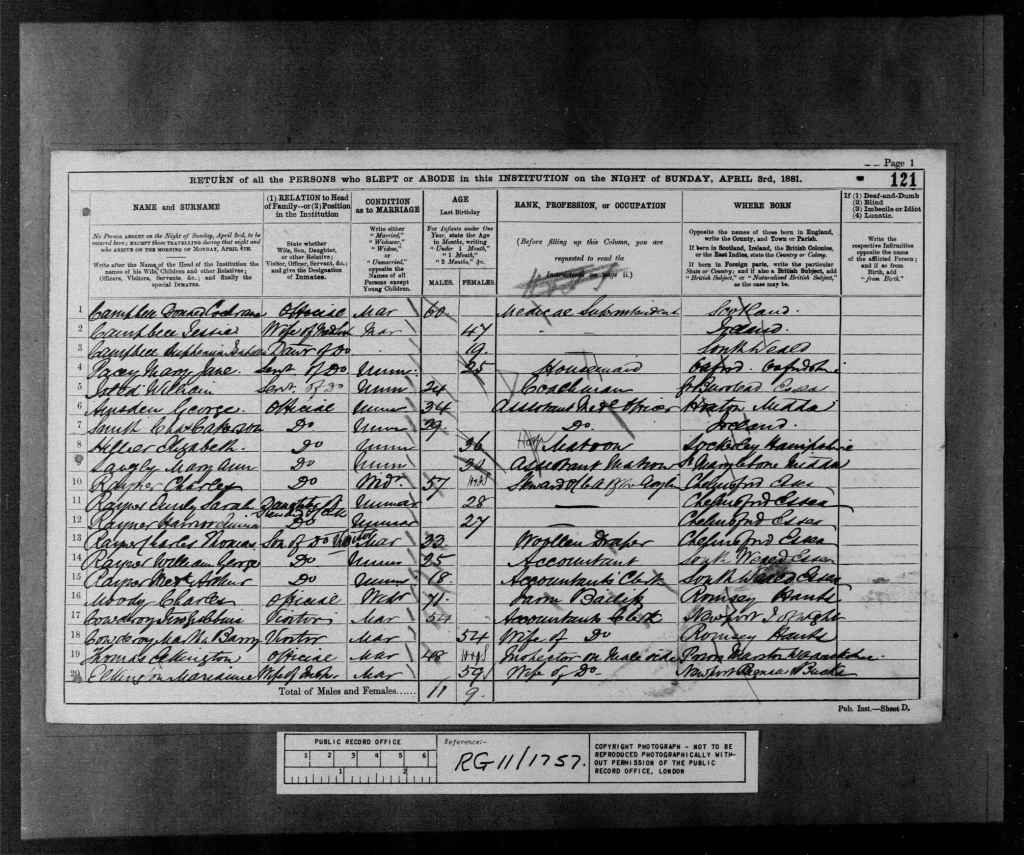 Page 1
121
RETURN of all the PERSONS who SLEPT or ABODE in this INSTITUTION on the NIGHT of SUNDAY, APRIL 3rd, 1881.
NAME and SURNAME
No Person ABSENT on the Night of Sunday, April 3rd, to be entered here; EXCEPT those TRAVELLING during that night and who ARRIVE ON THE MORNING OF MONDAY, APRIL 4TH.
Write after the Name of the Head of the Institution the names of his Wife, Children and other Relatives; Officers, Visitors, Servants, &c.; and finally the special INMATES.
(1) RELATION to Head of Family—or (2) Position in the Institution
State whether Wife, Son, Daughter, or other Relative; Visitor, Officer, Servant, &c.; and give the Designation of Inmates.
CONDITION as to MARRIAGE
Write either "Married," "Widower," "Widow," or "Unmarried," opposite the Names of all Persons except Young Children.
AGE
Last Birthday
For Infants under One Year, state the Age in Months, writing "Under 1 Month," "1 Month," "2 Months," &c.
MALES. FEMALES.
RANK, PROFESSION, or OCCUPATION
(Before filling up this Column, you are requested to read the
WHERE BORN
Opposite the names of those born in England, write the County, and Town or Parish.
If born in Scotland, Ireland, the British Colonies, or the East Indies, state the Country or Colony.
If born in Foreign parts, write the particular State or Country; and if also a British Subject, add "British Subject," or "Naturalised British Subject," as the case may be.
If (1) Deaf-and-Dumb
(2) Blind
(3) Imbecile or Idiot
(4) Lunatic.
Write the respective Infirmities opposite the name of the afflicted Person; and if so from Birth, add "from Birth."
1 Campbell Donald Cochrane Official Mar 60 Medical Superintendent Scotland
2 Campbell Jessie Wife of Mar 47 Ireland
3 Campbell Daur of Do 19 South Weald
4 Pacey Mary Jane Servt of Do Unm 25 Housemaid Oxford Oxfordshire
5 William Servt of Do Unm 24 Coachman Burstead Essex
6 Amsden George Official Unm 34 Assistant Medl Officer Middx
7 Smith Chas Do Unm 29 Do Ireland
8 Hillier Elizabeth Do Unm 36 Matron Lockerley Hampshire
9 Langly Mary Ann Do Unm 32 Assistant Matron St Marylebone Middx
10 Rayner Charles Do Widr 57 Steward Chelmsford Essex
11 Rayner Emily Sarah Daughter of Steward Unmar 28 — Chelmsford Essex
12 Rayner Do Unmar 27 — Chelmsford Essex
13 Rayner Charles Thomas Son of Do Visitor Mar 32 Woollen Draper Chelmsford Essex
14 Rayner William George Do Unm 25 Accountant South Weald Essex
15 Rayner Arthur Do Unm 18 Accountants Clerk South Weald Essex
16 Moody Charles Official Widr 71 Farm Bailiff Romsey Hants
17 Visitor Mar 54 Accountants Clerk Newport I of Wight
18 Martha Barry Visitor Mar 54 Wife of Do Romsey Hants
19 Thomas Elkington Official Mar 48 Inspector on Male side Marston
20 Elkington Marianne Wife of Mar 59 Wife of Do Newport Pagnell Bucks
Total of Males and Females...... 11 9
Pub. Inst.—Sheet D.
PUBLIC RECORD OFFICE
1 2 3 4 5 6
1 2
Reference:-
RG 11/1757.
COPYRIGHT PHOTOGRAPH - NOT TO BE
REPRODUCED PHOTOGRAPHICALLY WITH-
OUT PERMISSION OF THE PUBLIC
RECORD OFFICE, LONDON